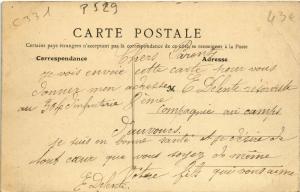 C331 P529 43e
CARTE POSTALE
Certains pays étrangers n'acceptent pas la correspondance de ce côté se renseigner à la Poste
Correspondance Adresse
Chers Parents
Je vous envoie cette carte pour vous
donner mon adresse E Delente réserviste
au d'infanterie 8ème
Compagnie au camp
D'auvours.
Je suis en bonne santé et désire de
tout cœur que vous soyez de même
Votre fils qui vous aime
E Delente